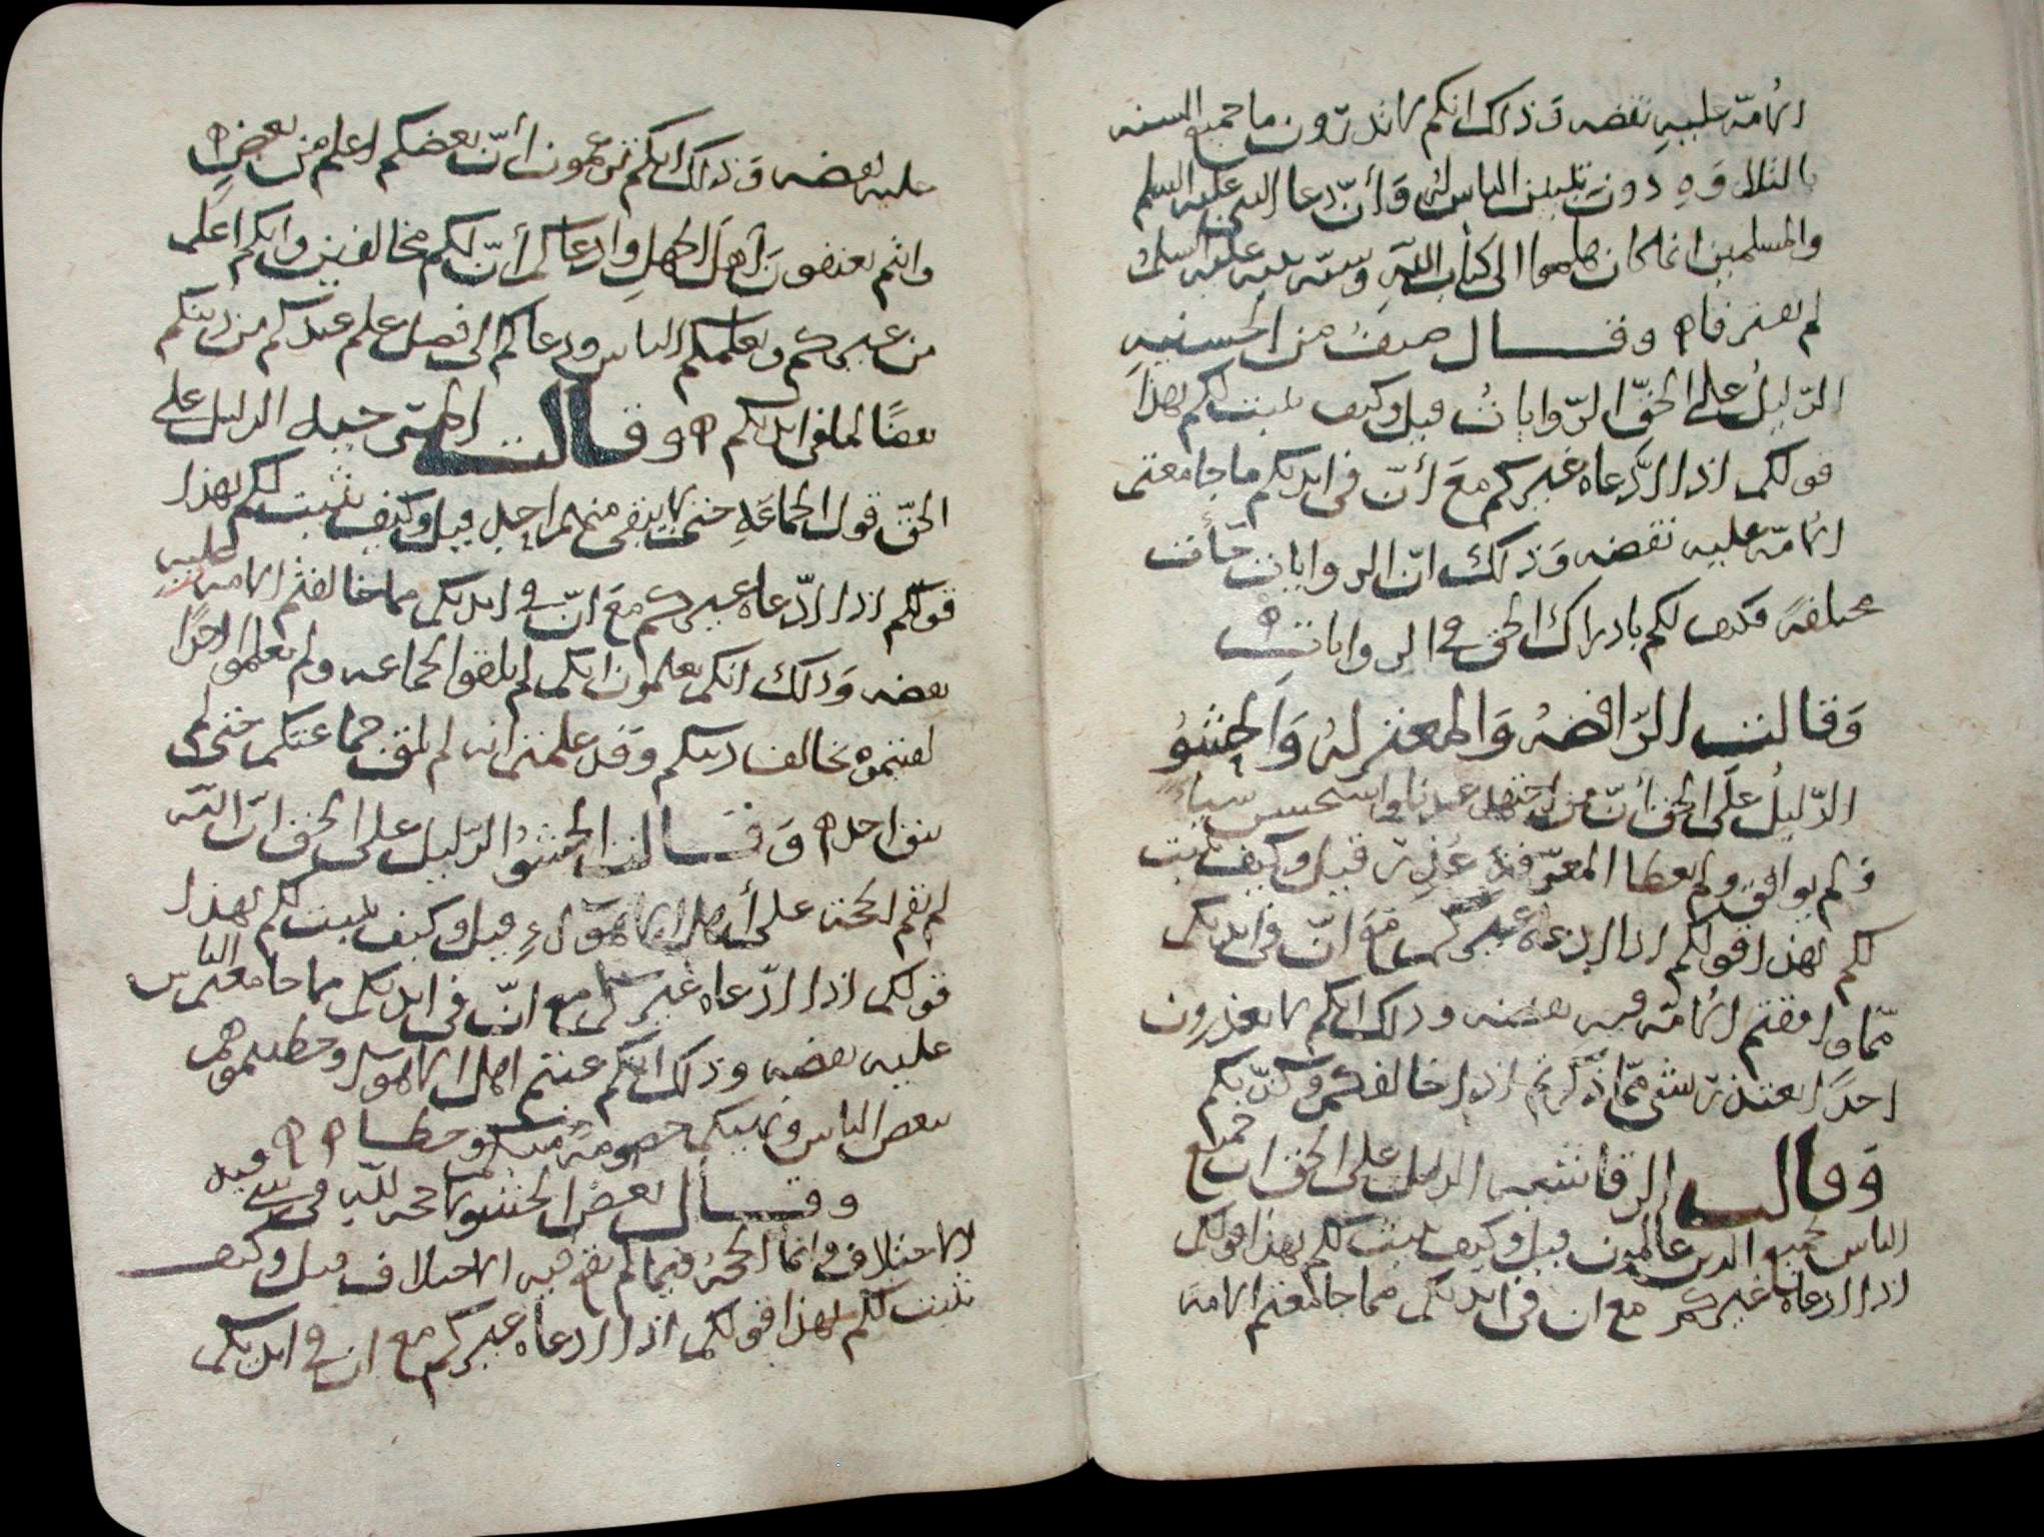 الامّة عليهِ نقضه وَذلك انكم لا تدرّون ما جميع السنه
بالتلاوَهِ دون تبيين الناس لها وَأنّ دعا النبي عليه السلم
والمسلمين انما كان هلموا الى كتاب اللّهِ وسنّه نبيه عليه السلم
لم يفترقا وقال صنفٌ من الحسينيهِ
الدّليلُ على الحقّ الرّواياتُ قيل وكيف يثبت لكم بهذا
قولكم اذا ادّعاه غيركم معَ أنّ في ايديكم ما جامعتم
الامّة عليه نقضه وَذلك انّ الروايات جأت
مختلفةً فكيف لكم بادراك الحق في الروايات
وَقالت الرّافضهُ وَالمعتزلهُ وَالحشوُ
الدّليلُ علَى الحق أنّ من اجتهد عندنا واستحسن شياءً
فلم يوافق ولم يعطا المعرفة عُذِرَ قيل وكيف يثبت
لكم بهذا قولكم اذا ادعاه غيركم معَ انّ في ايديكم
ممّا وافقتم الامّة فيه نقضه وذلك انكم لا تعذرون
احدًا اعتذر بشي ممّا ذكرتم اذا خالفكم وكذّبكم
وَقالت الرقاشيه الدليل على الحق ان جميع
الناس بجميع الدين عالمون قيل وكيف يثبت لكم بهذا قولكم
اذا ادعاه غيركم مع ان في ايديكم مما جامعتم الامة
عليه نقضه وَذلك انكم تزعمون أنّ بعضكم اعلم من بعضٍ
وانتم تعنفون أهلَ الجهلِ وادعاكم أنّ لكم مخالفين وانكم اعلم
من غيركم وتعلمكم الناس ودعاكم الى فضل علم عندكم من دينكم
نقضًا لما في ايديكم وقالت المتى حيله الدليل على
الحقّ قول الجماعَهِ حتى لا يبقى منهم احد قيل وكيف يثبت لكم بهذا
قولكم اذا ادّعاه غيركم معَ انّ في ايديكم مما خالفتم الامة عليه
نقضه وَذلك انكم تعلمون انكم لم تلقوا الجماعه ولم تعلموا احدًا
لقيتموه يخالف دينكم وقد علمتم انه لم تلق جماعتكم حتى لم
يبق احد وَقالت الحشوُ الدّليل على الحق انّ اللّه
لم يقم الحجة على أهل الاهوآءِ قيل وكيف يثبت لكم بهذا
قولكم اذا ادّعاه غيركم مع انّ في ايديكم مما جامعتم الناس
عليه نقضه وذلك انكم عنتم اهل الاهوا وخطيتموهم
ببعض الناس وتهيبكم خصومة منكم وخطا
وقال بعض الحشو لا حجة للّه في شي قيل
الاختلاف وانما الحجة فيما لم يقع فيه الاختلاف قيل وكيف
يثبت لكم بهذا قولكم اذا ادعاه غيركم مع ان في ايديكم